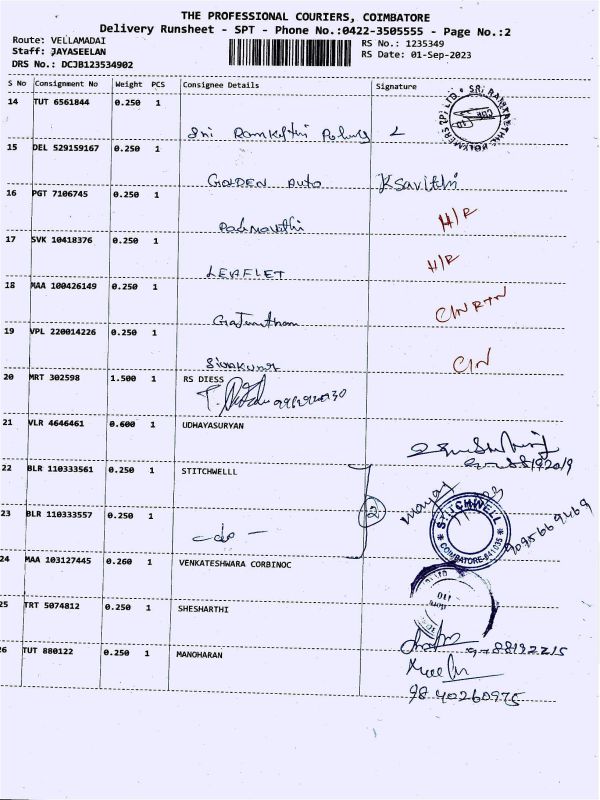 THE PROFESSIONAL COURIERS, COIMBATORE
Delivery Runsheet - SPT - Phone No.:0422-3505555 - Page No.:2
Route: VELLAMADAI
RS No.: 1235349
Staff: JAYASEELAN
RS Date: 01-Sep-2023
DRS No.: DCJB123534902
S No Consignment No Weight PCS Consignee Details Signature
14 TUT 6561844 0.250 1
Sri
15 DEL 529159167 0.250 1
GOLDEN Auto KSavithri
16 PGT 7106745 0.250 1
Padmavathi H/R
17 SVK 10418376 0.250 1
LEAFLET H/R
18 MAA 100426149 0.250 1
CINRTN
19 VPL 220014226 0.250 1
Sivakumar CIN
20 MRT 302598 1.500 1 RS DIESS
21 VLR 4646461 0.600 1 UDHAYASURYAN
22 BLR 110333561 0.250 1 STITCHWELLL
23 BLR 110333557 0.250 1
-do-
STITCHWELL
COIMBATORE-641035
9095669469
24 MAA 103127445 0.260 1 VENKATESHWARA CORBINOC
25 TRT 5074812 0.250 1 SHESHARTHI
26 TUT 880122 0.250 1 MANOHARAN
98 40260975